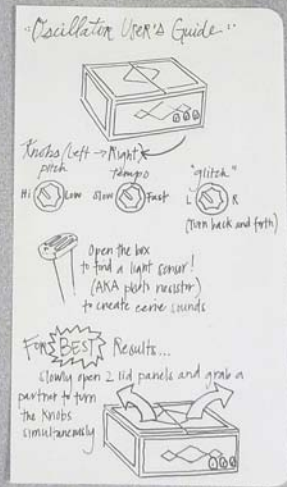 Oscillator User's Guide
Knobs/Left → Right
pitch
Hi Low
Tempo
Slow Fast
"glitch"
L R
(Turn back and forth)
Open the box
to find a light sensor!
(AKA photo resistor)
to create eerie sounds
For BEST Results...
slowly open 2 lid panels and grab a
partner to turn
the knobs
simultaneously